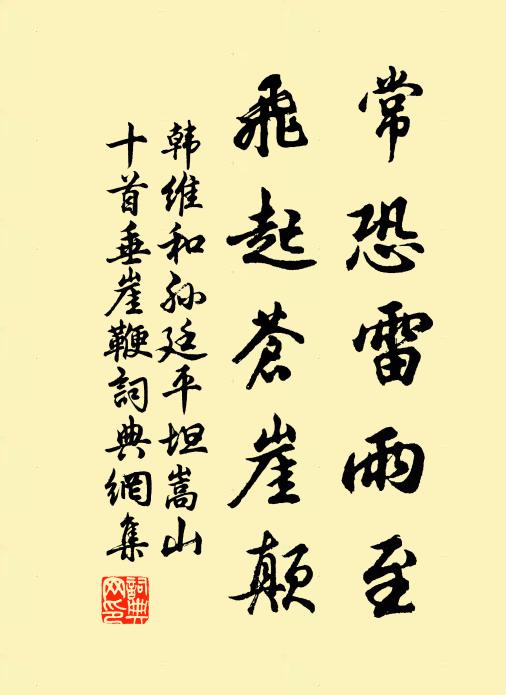 常恐雷雨至
飛起蒼崖顛
韩維和孙廷平坦嵩山
十首垂崖鞭詞典網集